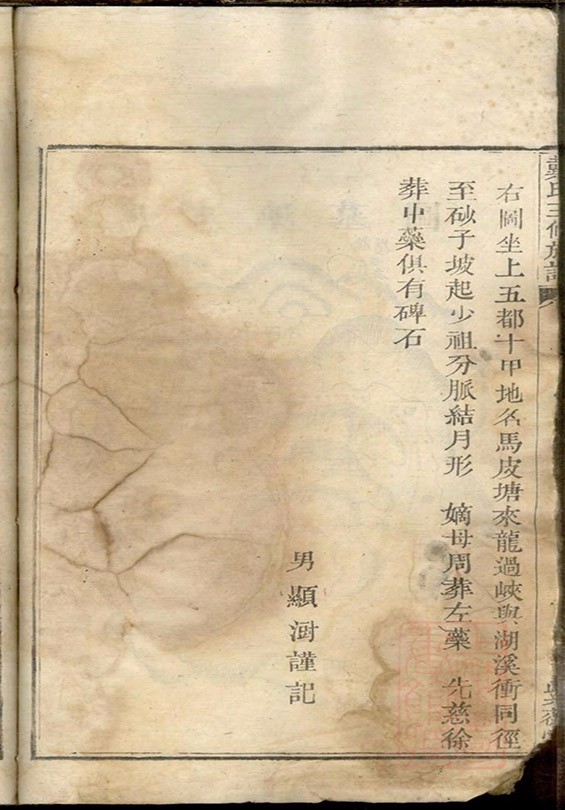 戴氏三修族譜
右圖坐上五都十甲地名馬皮塘來龍過峽與湖溪衝同徑
至砂子坡起少祖分脈結月形　嫡母周葬左藥　先慈徐
葬中藥俱有碑石
男顯澍謹記